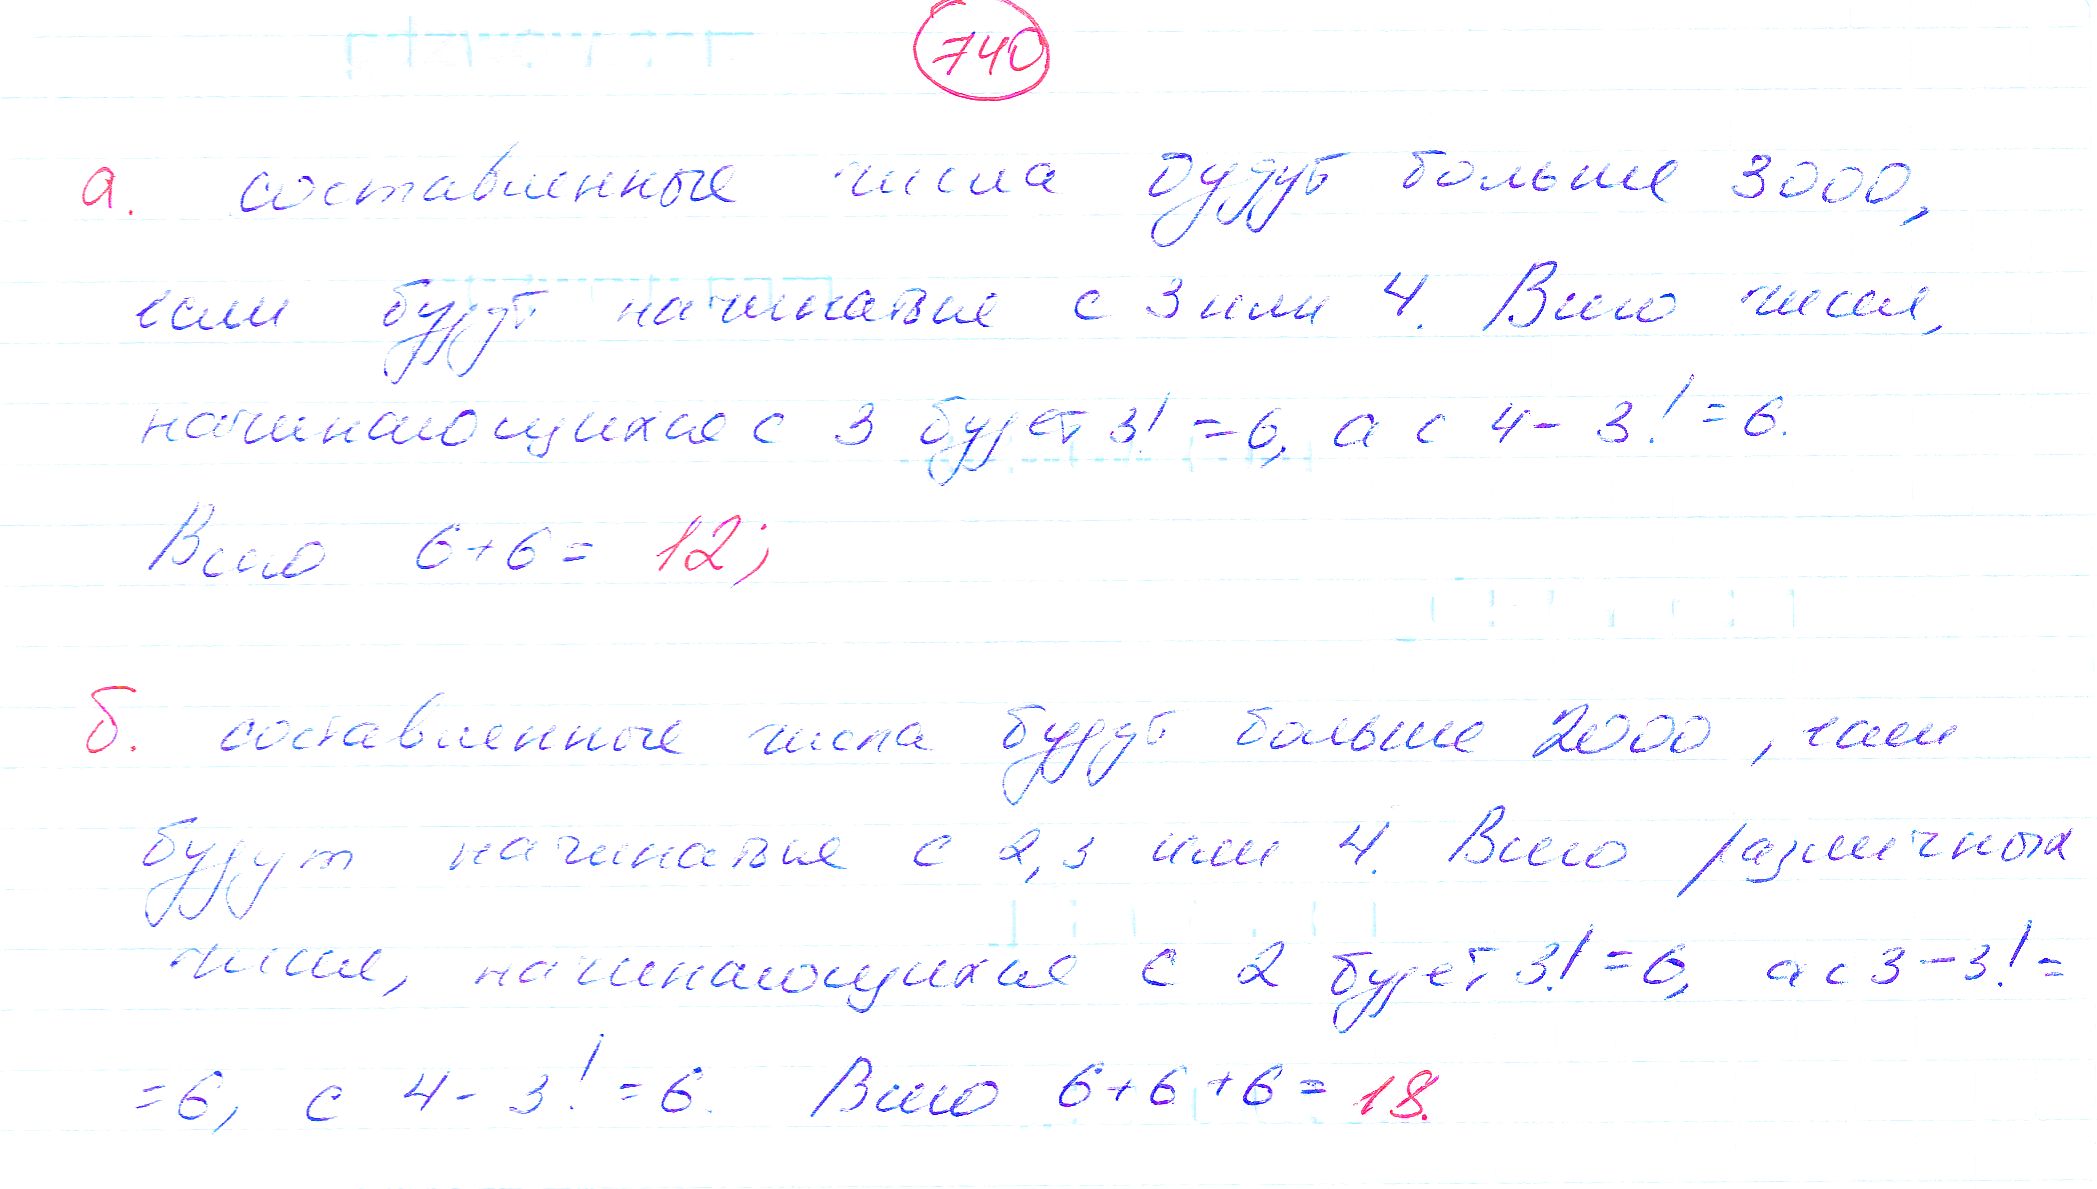 740
а. составленные числа будут больше 3000,
если будут начинаться с 3 или 4. Всего чисел,
начинающихся с 3 будет 3! = 6, а с 4 - 3! = 6.
Всего 6+6 = 12;
б. составленные числа будут больше 2000, если
будут начинаться с 2, 3 или 4. Всего различных
чисел, начинающихся с 2 будет 3! = 6, а с 3 - 3! =
= 6, с 4 - 3! = 6. Всего 6+6+6 = 18.